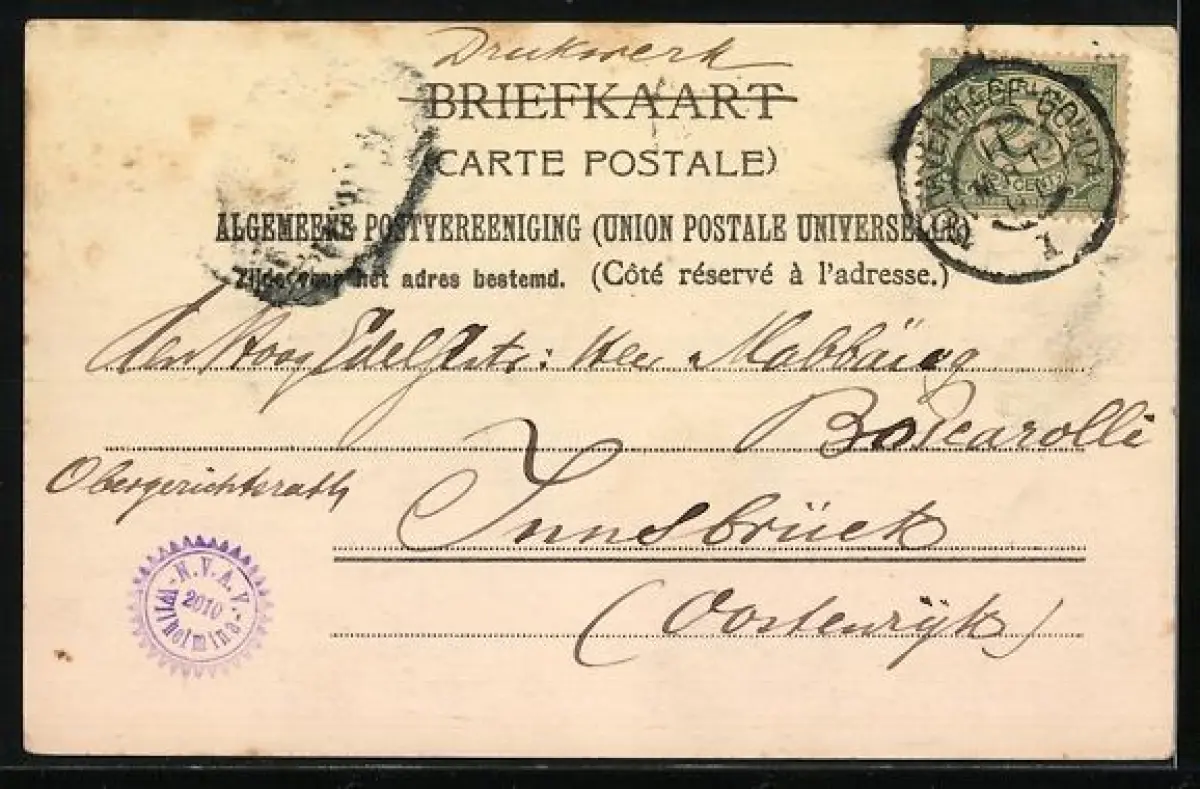 Drukwerk
BRIEFKAART
(CARTE POSTALE)
ALGEMEENE POSTVEREENIGING (UNION POSTALE UNIVERSELLE)
Zijde voor het adres bestemd. (Côté réservé à l'adresse.)
GOUDA
CENT
1
Hoog Edel
Boscarolli
Obergerichtsrath
Innsbrück
(Oostenrÿk)
N.V.A.V.
2010
Wilhelmina